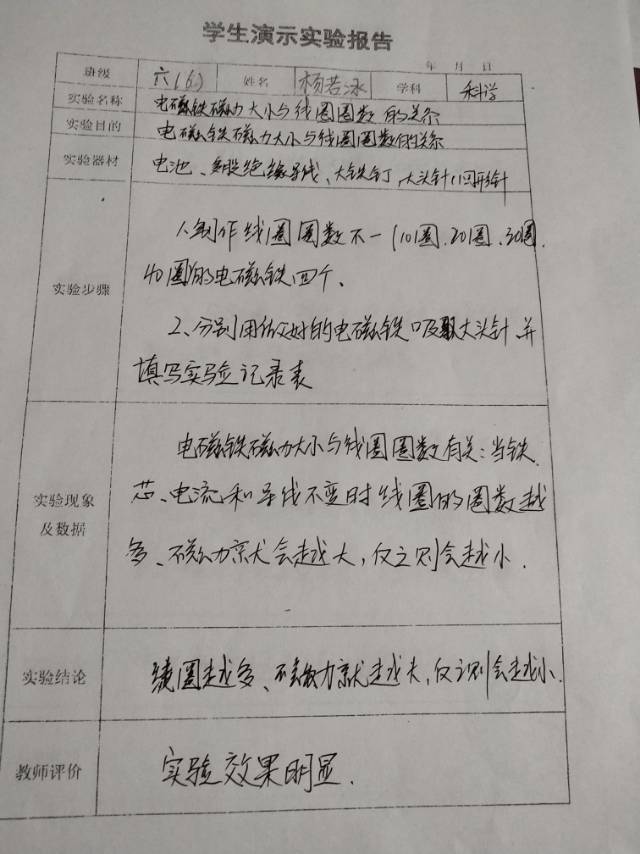 学生演示实验报告
年 月 日
班级 六(6) 姓名 杨若泳 学科 科学
实验名称 电磁铁磁力大小与线圈圈数的关系
实验目的 电磁铁磁力大小与线圈圈数的关系
实验器材 电池、多股绝缘导线、大铁钉、大头针(回形针
实验步骤
1、制作线圈圈数不一(10圈、20圈、30圈、
40圈)的电磁铁四个、
2、分别用做好的电磁铁吸取大头针,并
填写实验记录表
实验现象
及数据
电磁铁磁力大小与线圈圈数有关:当铁
芯、电流和导线不变时线圈的圈数越
多、磁力就会越大,反之则会越小.
实验结论 线圈越多、磁力就越大,反之则会越小.
教师评价 实验效果明显.